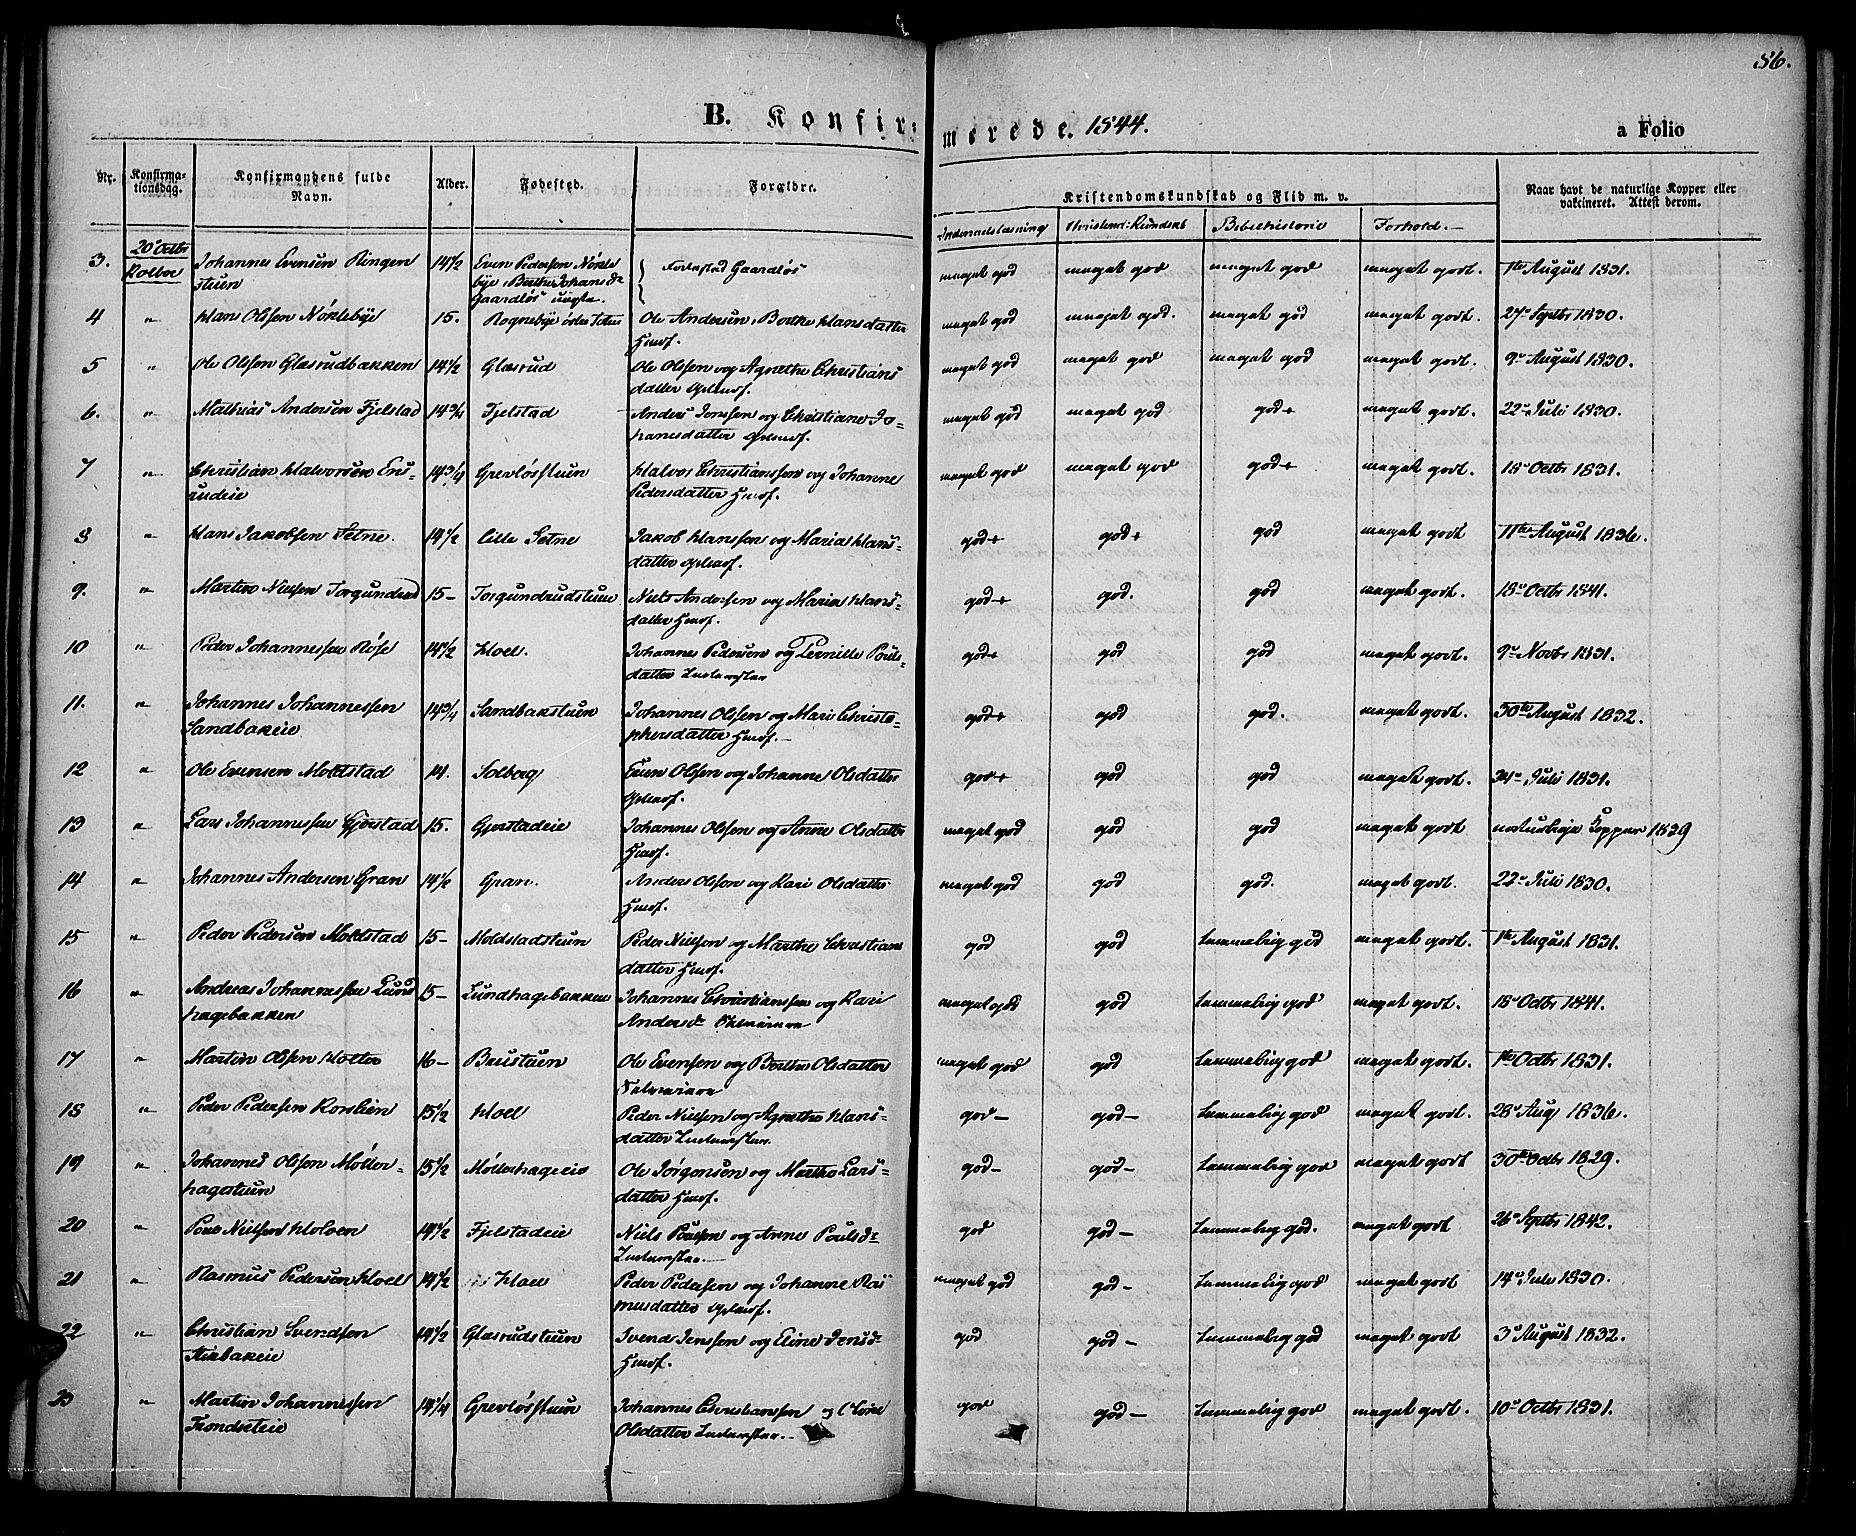 86.
B. Konfirmerede. 1844.
a Folio
Nr. Konfirmationsdag. Konfirmandens fulde Navn. Alder. Fødested. Forældre. Kristendomskundskab og Flid m. v. Naar havt de naturlige Kopper eller vaktineret. Attest derom.
Indenadslæsning Christend: Kundsk: Bibelhistorie Forhold.
3. 20de Octbr Kolboe Johannes Evensen Ringenstuen 14 1/2 Even Pedersen Nøklebye, Berthe Johansdr Gaardløs uægte. Gaardløs meget god meget god meget god meget godt. 1te August 1831.
4 " Hans Olsen Nøklebye 15. Rognebye østre Toten Ole Andersen, Berthe Hansdatter Huusf. meget god meget god. meget god meget godt. 27de Septbr 1830.
5 " Ole Olsen Glæsrudbakken 14 1/2 Glæsrud Ole Olsen og Agnethe Christiansdatter Gdmdf. meget god meget god meget god meget godt. 9de August 1830.
6. " Mathias Andersen Fjelstad 14 3/4 Fjelstad Anders Jensen og Christiane Johanesdatter Gdmdf. meget god meget god god+ meget godt. 22de Juli 1830.
7 " Christian Halvorsen Ensrudeie 14 3/4 Grevløsstuen Halvor Christianssen og Johanne Pedersdatter Huusf. meget god meget god god+ meget godt. 18de Octbr 1831.
8 " Hans Jakobsen Setne. 14 1/2 Lille Setne Jakob Hanssen og Maria Hansdatter Gdmdf. god+ god+ god meget godt 11te August 1836.
9. " Martin Nielsen Torgundrud 15- Torgundrudstuen Niels Andersen og Maria Hansdatter Huusf. god+ god. god meget godt. 18de Octbr 1841.
10 " Peder Johannessen Røise 14 1/2 Hoel. Johannes Pedersen og Pernille Poulsdatter Inderster god+ god god meget godt. 9de Novbr 1831.
11. " Johannes Johannessen Sandbakeie 14 3/4 Sandbakstuen Johannes Olsen og Mari Christophersdatter Huusf. god+ god god. meget godt. 30te August 1832.
12 " Ole Evensen Moldstad 14. Solberg Even Olsen og Johanne Olsdatter Gdmdf. god+ god god meget godt. 24de Juli 1831.
13 " Lars Johannessen Gjerstad 15. Gjerstadeie Johannes Olsen og Anne Olsdatter Huusf. meget god god god meget godt naturlige Kopper 1839
14 " Johannes Andersen Gran 14 1/2 Gran. Anders Olsen og Kari Olsdatter Huusf. meget god god god. meget godt. 22de Juli 1830.
15 " Peder Pedersen Moldstad 15- Moldstadstuen Peder Nielsen og Marthe Christiansdatter Huusf. god god temmelig god meget godt. 1te August 1831.
16 " Andreas Johannessen Lundhagebakken 15- Lundhagebakken Johannes Christianssen og Kari Andersdr Selveiere meget god god temmelig god meget godt. 18de Octbr 1841.
17 " Martin Olsen Holter 16- Bæustuen Ole Evensen og Berthe Olsdatter Selveiere meget god god temmelig god meget godt. 1te Octbr 1831.
18 " Peder Pedersen Korslien 15 1/2 Hoel Peder Nielsen og Agnethe Hansdatter Inderster. god- god- temmelig god meget godt. 28de Aug 1836.
19 " Johannes Olsen Møllerhagestuen 15 1/2 Møllerhageeie Ole Jørgensen og Marthe Larsdatter Huusf. god- god- temmelig god meget godt 30te Octbr 1829.
20 " Poul Nielsen Holoen 14 1/2 Fjelstadeie Niels Poulsen og Anne Poulsdr Inderster. god god- temmelig god. meget godt 26de Septbr 1842.
21 " Rasmus Pedersen Hoel 14 1/2 Hoel Peder Pedersen og Johanne Rasmusdatter Gdmdf. meget god god- temmelig god meget godt 14de Juli 1830.
22 " Christian Svendsen Stikbakeie 14 1/2 Glæsrudstuen Svend Jenssen og Eline Jensdr Huusf. god god- temmelig god meget godt 3de August 1832.
23 " Martin Johannessen Trondseteie 14 1/4 Grevløsstuen Johannes Christianssen og Olsdatter Inderster. god god- temmelig god meget godt. 10de Octbr 1831.